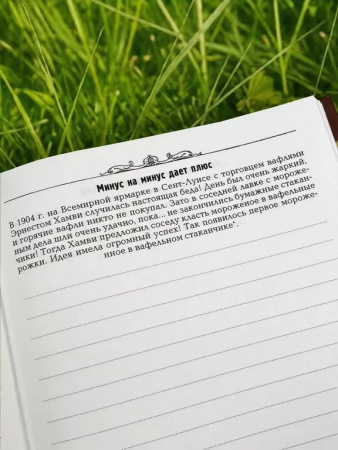 Минус на минус дает плюс
В 1904 г. на Всемирной ярмарке в Сент-Луисе с торговцем вафлями
Эрнестом Хамви случилась настоящая беда! День был очень жаркий,
и горячие вафли никто не покупал. Зато в соседней лавке с мороже-
ным дела шли очень удачно, пока... не закончились бумажные стакан-
чики! Тогда Хамви предложил соседу класть мороженое в вафельные
рожки. Идея имела огромный успех! Так появилось первое мороже-
ное в вафельном стаканчике*.